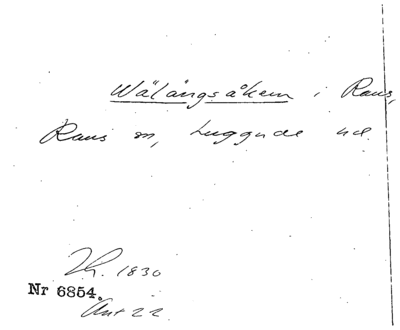 Wälångsåkern i Raus,
Raus sn, Luggude hd.
Th. 1830
Nr 6854.
Ant 22